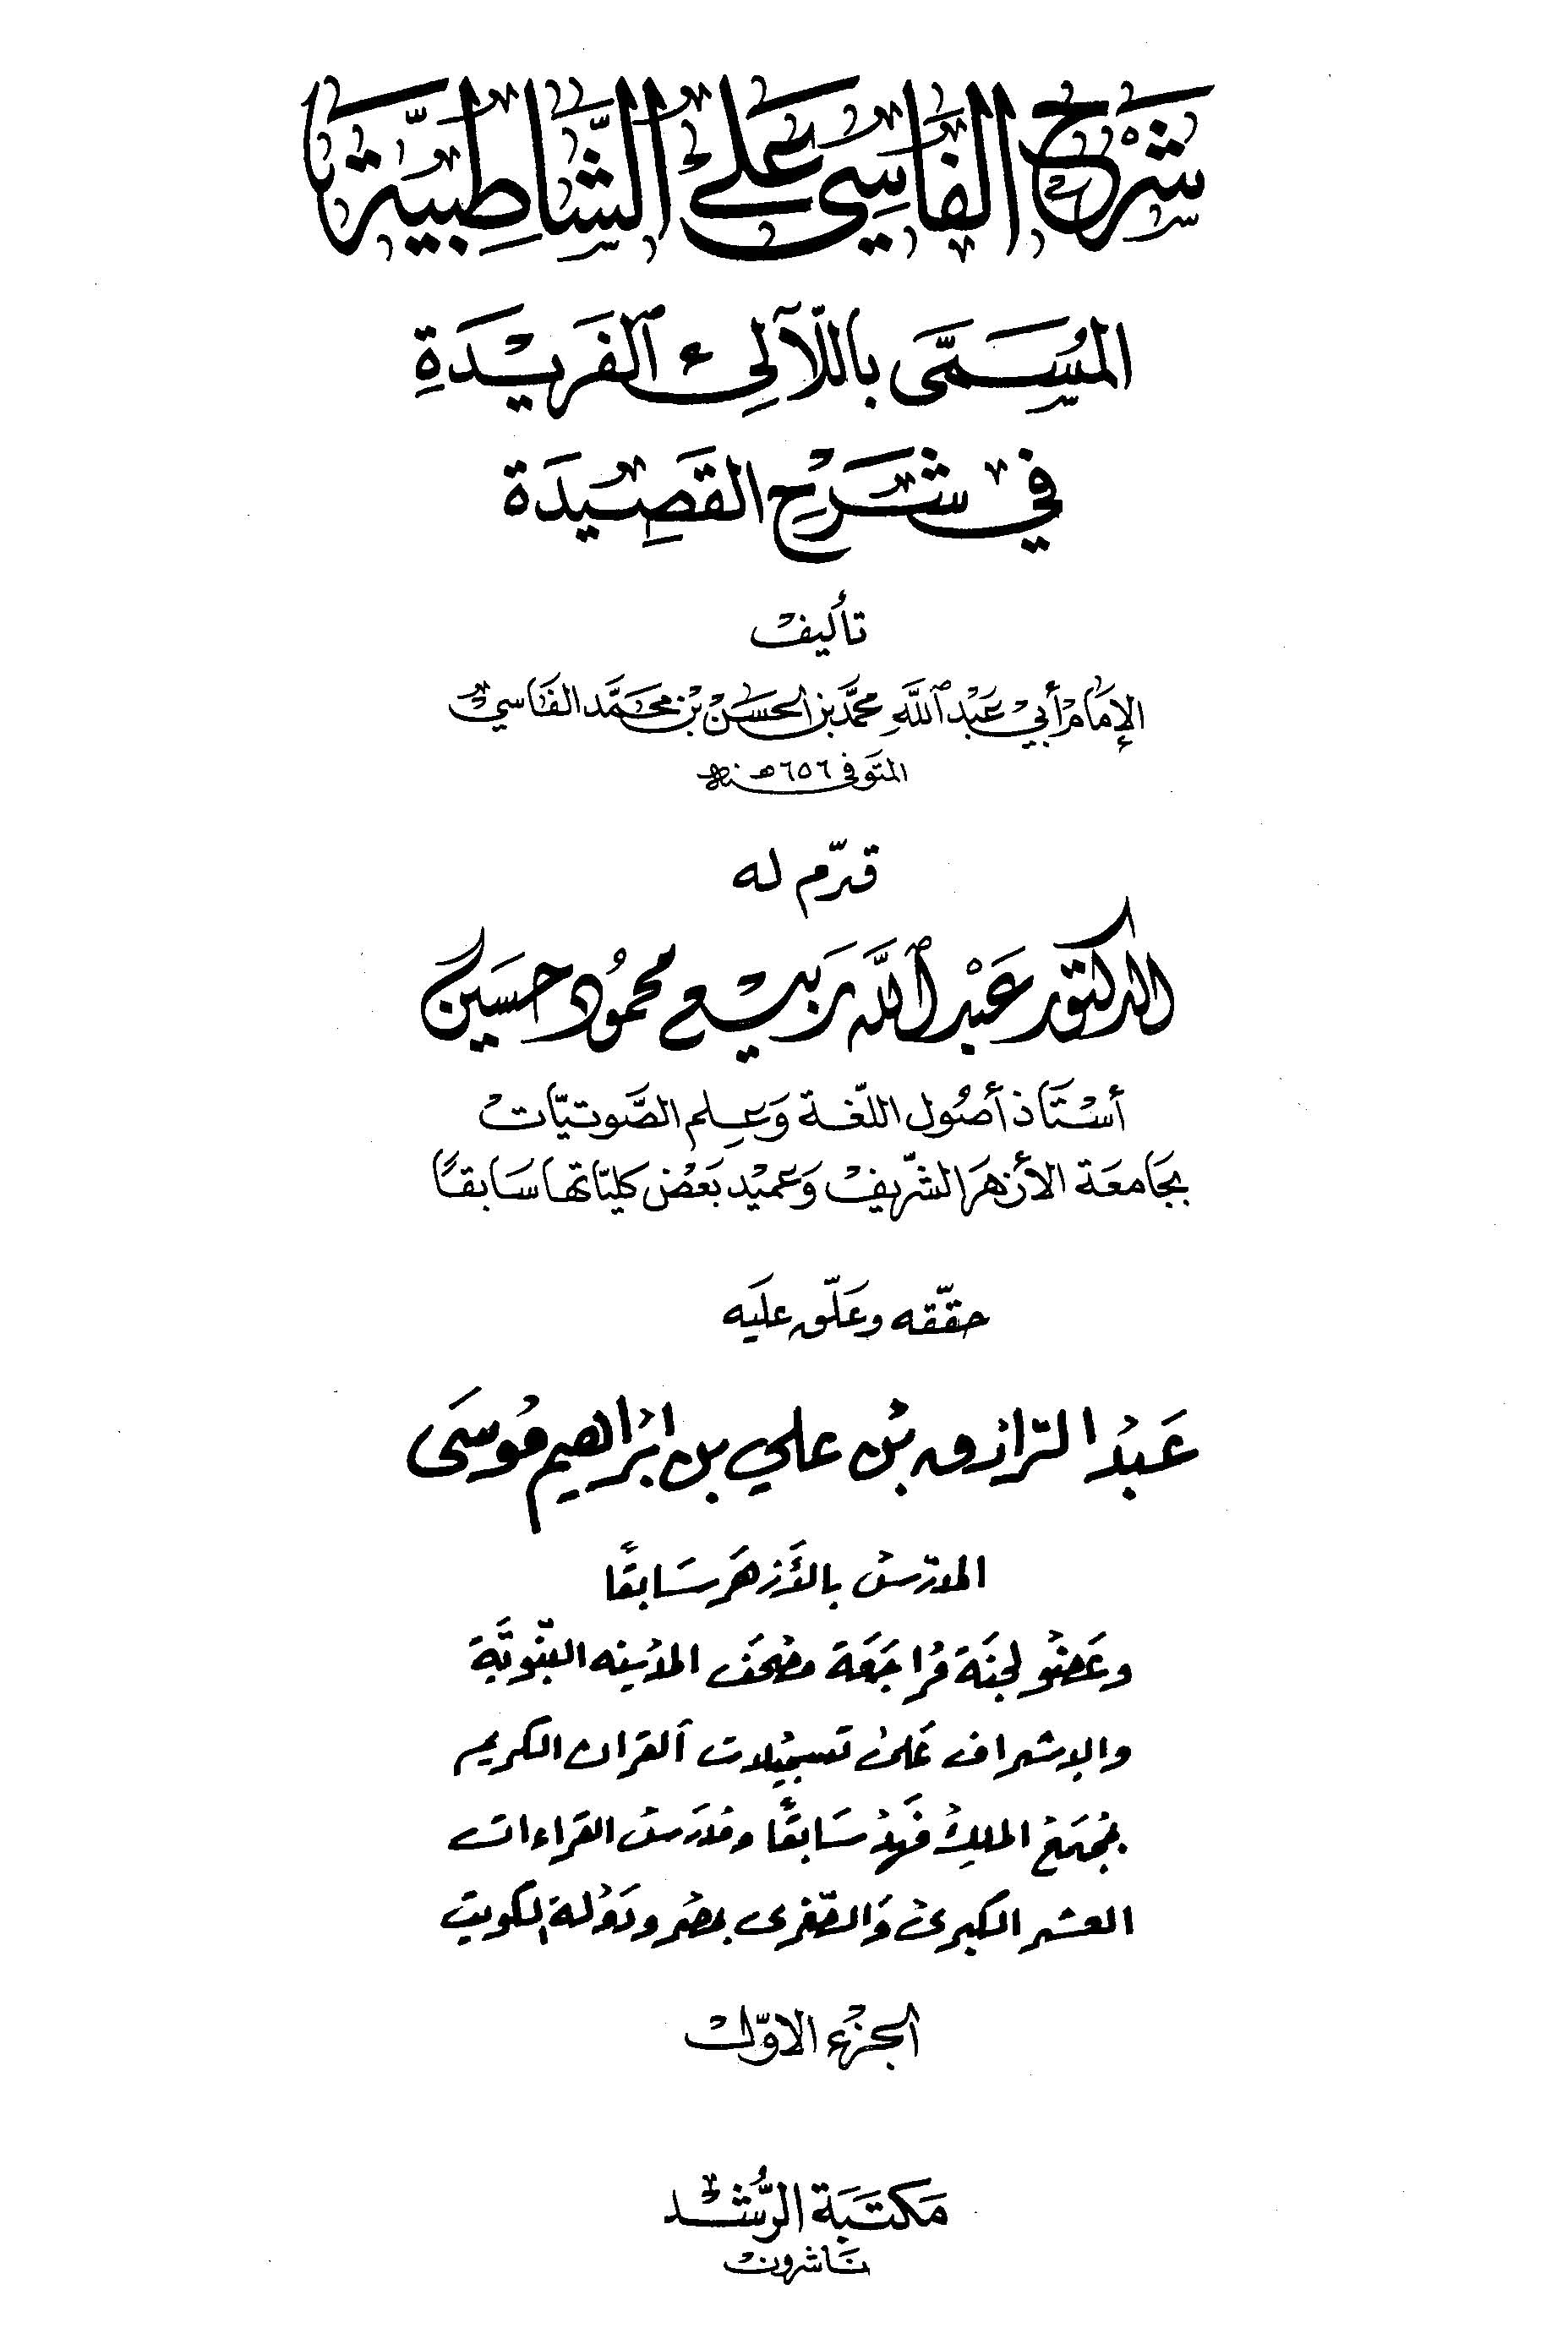 شَرْحُ الفَاسِي عَلَى الشَّاطِبِيَّة
المُسَمَّى بِاللّآلِئ الفَرِيْدَةِ
فِي شَرْحِ القَصِيْدَة
تأليف
الإمَام أبيْ عَبْد اللَّهِ محمَّد بن الحسَنْ بْن محَمَّد الفَاسيْ
المتَوفى سنة ٦٥٦ هـ
قدّم له
الدكتور عَبْد اللَّه رَبيْع محمُود حسَين
أسْتَاذ أصُول اللّغة وَعِلم الصَّوتيّات
بجَامعَة الأزهَر الشّريفْ وَعميْد بَعْض كليّاتها سَابقًا
حقّقه وعَلّق عليَه
عَبْد الرّازق بْن علي بن ابْراهيم مُوسَى
المدرّسْ بالأزهَر سَابقًا
وعَضْو لجنَة مُراجَعَة مصْحَف المدينه النبّويَّة
والإشراف عَلىْ تسجيْلات القران الكريم
بمجْمَعْ الملكْ فَهدْ سَابقًا ومْدَرسْ القراءات
العشر الكبرىْ وَالصّغرى بمصْر ودَوْلة الكويت
الجزْء الاوّل
مَكتَبَة الرُّشْد
نَاشرونْ